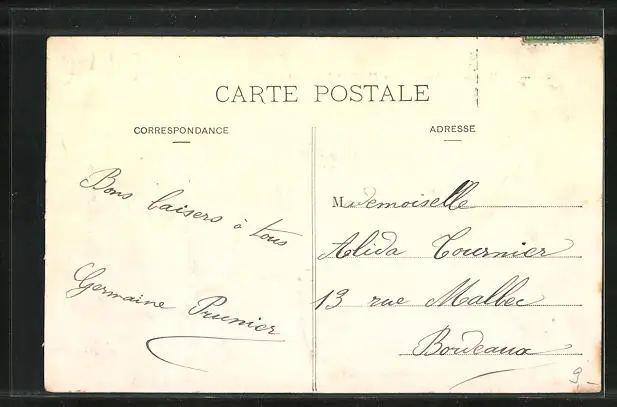 CARTE POSTALE
CORRESPONDANCE
Bons baisers à tous
Germaine Prunier
ADRESSE
Mademoiselle
Alida Tournier
13 rue Malbec
Bordeaux
9-